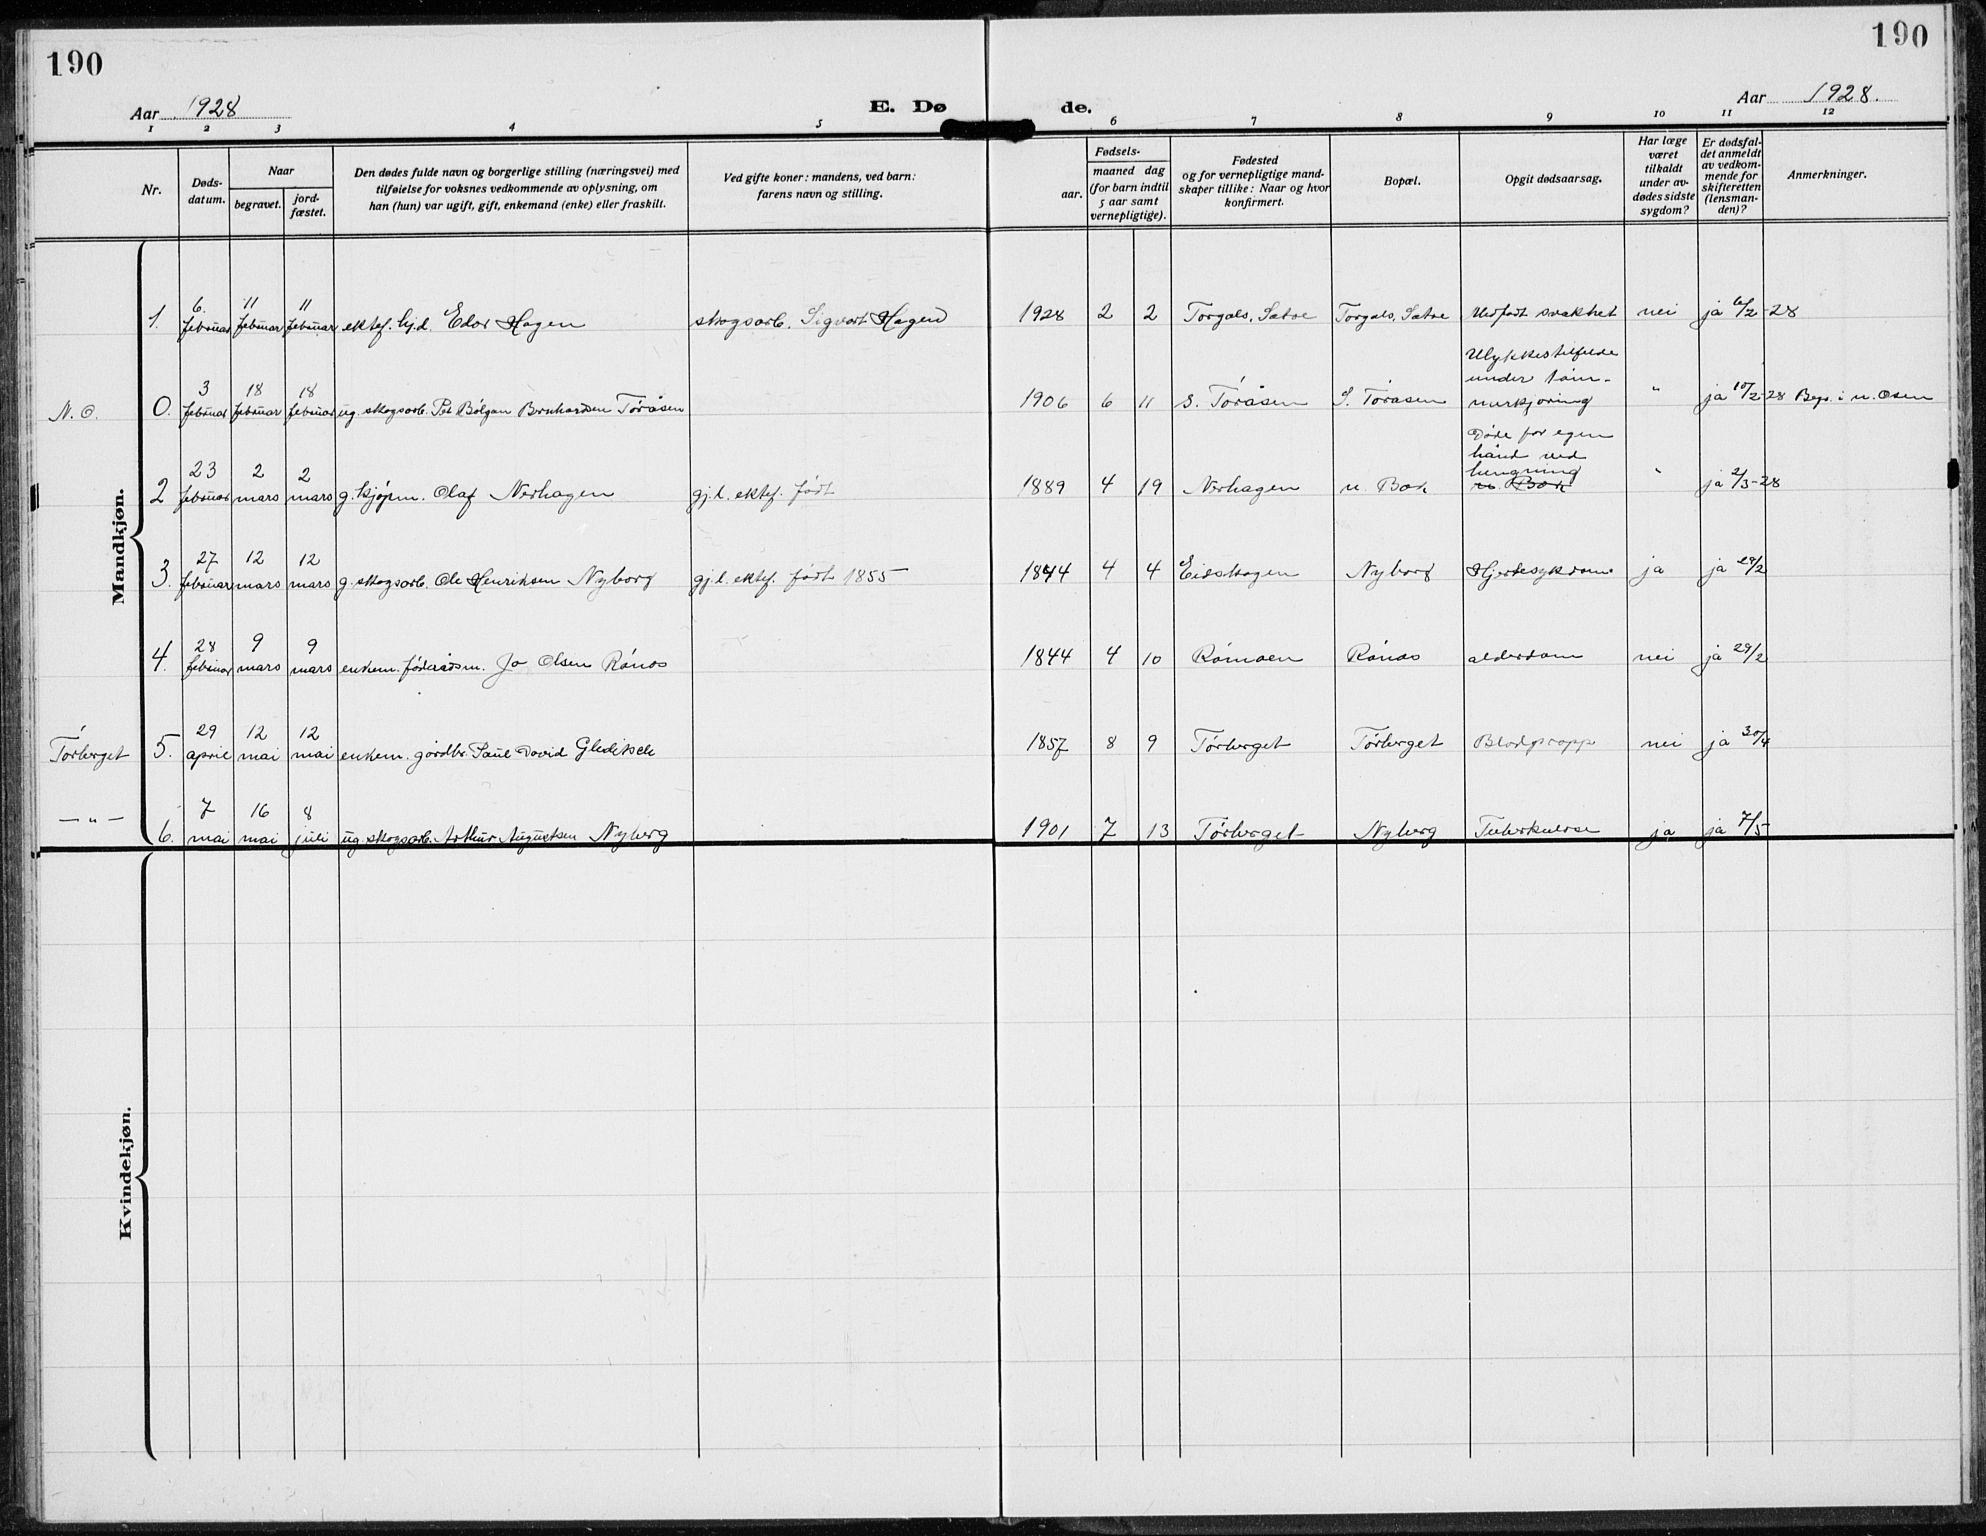 190
190
Aar 1928
E. Dø
de.
Aar 1928.
1 2 3 4 5 6 7 8 9 10 11 12
Nr.
Døds-
datum.
Naar
begravet.
jord-
fæstet.
Den dødes fulde navn og borgerlige stilling (næringsvei) med
tilføielse for voksnes vedkommende av oplysning, om
han (hun) var ugift, gift, enkemand (enke) eller fraskilt.
Ved gifte koner: mandens, ved barn:
farens navn og stilling.
Fødsels-
aar.
maaned dag
(for barn indtil
5 aar samt
vernepligtige).
Fødested
og for vernepligtige mand-
skaper tillike: Naar og hvor
konfirmert.
Bopæl.
Opgit dødsaarsag.
Har læge
været
tilkaldt
under av-
dødes sidste
sygdom?
Er dødsfal-
det anmeldt
av vedkom-
mende for
skifteretten
(lensman-
den)?
Anmerkninger.
Mandkjøn.
1. 6. februar 11 februar 11 februar ektef. hj.d. Edor Hagen skogsarb. Sigvart Hagen 1928 2 2 Torgals, Sætre Torgals, Sætre Medfødt svakhet nei ja 6/2-28
N. O. 0. 3 februar 18 februar 18 februar ug. skogsarb. Bernhardsen Töråsen 1906 6 11 S. Töråsen S. Töråsen Ulykkestilfelde
under töm-
merkjöring " ja 10/2-28 Begr. i n. Osen
2 23 februar 2 mars 2 mars g. kjøpm. Olaf Nerhagen gj.l. ektef. født 1889 4 19 Nerhagen n. Bæk Døde for egen
hånd ved
hengning
n. Bæk " ja 2/3-28
3. 27 februar 12 mars 12 mars g. skogsarb. Ole Henriksen Nyborg gj.l. ektef. født 1855 1844 4 4 Eidskogen Nyborg Hjertesykdom ja ja 28/2
4. 28 februar 9 mars 9 mars enkem. föderådsm. Jo Olsen Rönås 1844 4 10 Römoen Rönås alderdom nei ja 29/2
Törberget 5. 29 april 12 mai 12 mai enkem. gårdbr. Paul David Gleditsch 1857 8 9 Törberget Törberget Blodpropp nei ja 30/4
— " — 6. 7 mai 16 mai 8 juli ug. skogsarb. Arthur Augustsen Nyberg 1901 7 13 Törberget Nyberg Tuberkulose ja ja 7/5
Kvindekjøn.